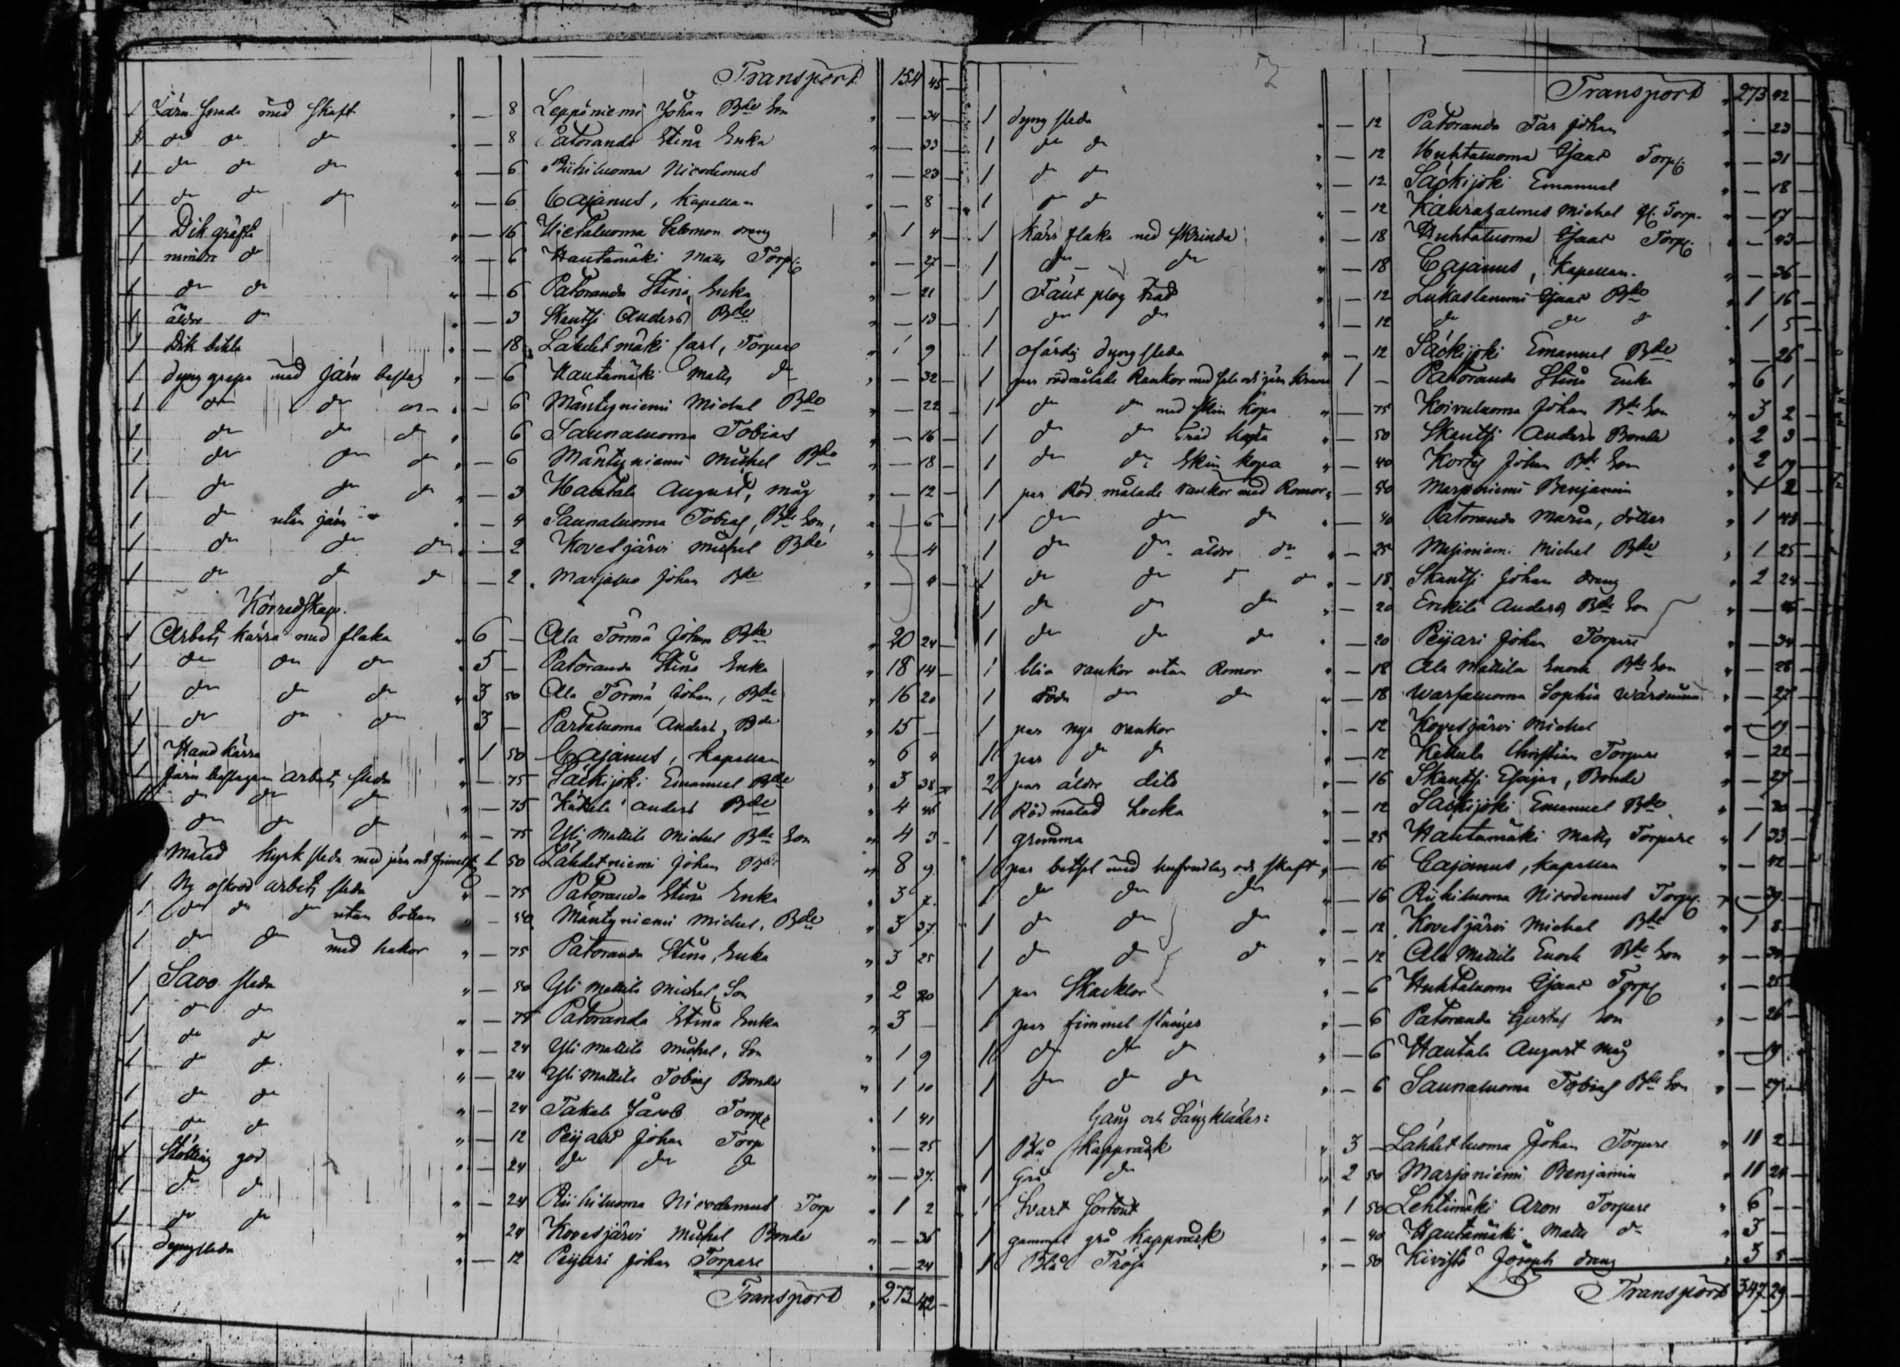 Transport 154 45
1 Järn spade med Skaft " — 8 Leppäniemi Johan Bde Son " — 34
1 do do do " — 8 Patoranda Stina Enka " — 33
1 do do do " — 6 Riihiluoma Nicodemus " — 23
1 do do do " — 6 Cajanus, Kapellan " — 8
1 Dik gräfta " — 16 Hietaluoma Salomon dräng " 1 4
1 mindre do " — 6 Hautamäki Matts Torp. " — 27
1 do do " — 6 Patoranda Stina, Enka " — 21
1 äldre do " — 3 Skantsi Anders Bde " — 13
1 Dik bila " — 18 Lahdetmäki Carl, Torpare " 1 9
1 dyng grepa med Järn beslag " — 6 Hautamäki Matts do " — 32
1 do do do " — 6 Mäntyniemi Michel Bde " — 22
1 do do do " 6 Saunaluoma Tobias " — 16
1 do do do " — 6 Mäntyniemi Michel Bde " — 18
1 do do do " — 3 Hautala August, måg " — 12
1 do utan järn " — 4 Saunaluoma Tobias, Bde Son, " — 6
1 do do do " — 2 Kovesjärvi Michel Bde " — 4
1 do do do — 2 Marjaluo Johan Bde " — 4
Körredskap.
1 Arbets kärra med flaka " 6 — Ala Törmä Johan Bde " 20 24
1 do do do " 5 — Patoranda Stina Enka " 18 14
1 do do do " 3 50 Ala Törmä Johan, Bde " 16 20
1 do do do 3 — Partaluoma Anders, Bde " 15 —
1 Hand kärra " 1 50 Cajanus, Kapellan " 6 4
1 Järn beslagen arbets släda " — 75 Säckijoki Emanuel Bde " 3 38
do do do " — 75 Anders Bde " 4 45
do do do " — 75 Yli Mattila Michel Bde Son " 4 3
Målad Kyrk släda med järn och 1 50 Lahdetniemi Johan Bde " 8 9
1 Ny arbets släda " — 75 Patoranda Stina Enka " 3 7
1 do do do utan botten " — 50 Mäntyniemi Michel, Bde " 3 37
1 do do med hakor " — 75 Patoranda Stina, Enka " 3 25
1 Savo släda " — 50 Yli Mattila Michel, Son " 2 20
1 do do " — 75 Patoranda Stina Enka " 3 —
1 do do " — 24 Yli Mattila Michel, Son " 1 9
1 do do " — 24 Yli Mattila Tobias Bonde " 1 10
1 do do " — 24 Takala Jacob Torp. " 1 41
1 do do " — 12 Peijari Johan Torp " — 25
1 god " — 24 do do do " — 37
1 do do " — 24 Riihiluoma Nicodemus Torp " 1 2
1 do do " 24 Kovesjärvi Michel Bonde " — 36
1 Dyng släda " — 12 Peijari Johan Torpare " — 24
Transport " 273 42
Transport " 273 42
1 dyng släda " — 12 Patoranda Johan " — 23
1 do do " — 12 Huhtaluoma Isaac Torp. " — 31
1 do do " — 12 Säckijoki Emanuel " — 18
1 do do " — 12 Michel Torp. " — 17
1 Kärr flaka med Skrinda " — 18 Huhtaluoma Isaac Torp. " — 43
1 do do " — 18 Cajanus, Kapellan. " — 36
1 plog träd " — 12 Lukaslammi Isaac Bde " 1 16
1 do do " — 12 do do do " 1 5
1 ofärdig dyng släda " — 12 Säckijoki Emanuel Bde " — 26
1 par rödmålade Rankor med 1 — Patoranda Stina Enka " 6 1
1 do do med Skin Kopa " — 75 Koivuluoma Johan Bde Son " 3 2
1 do do träd " — 50 Skantsi Anders Bonde " 2 3
1 do do Skin Kopa " — 40 Johan Bde Son " 2 19
1 par Röd målade rankor med Romor " — 50 Marjoniemi Benjamin " 1 2
1 do do do " — 40 Patoranda Maria, dotter " 1 48
1 do do äldre do " — 25 Michel Bde " 1 25
1 do do do do " — 18 Skantsi Johan dräng " 2 24
1 do do do — 20 Erkkilä Anders Bde Son " —
1 do do do " — 20 Peijari Johan Torpare " — 34
1 blåa rankor utan Romor " — 18 Ala Mattila Enoch Bde Son " — 28
1 röda do do " — 18 Sophia " — 27
1 par nya rankor " — 12 Kovesjärvi Michel " — 19
1 par do do " — 12 Christian Torpare " — 22
2 par äldre dito " — 16 Skantsi Elsajas, Bonde " — 27
1 Rödmålad Locka " — 12 Säckijoki Emanuel Bde " — 30
1 grimma " — 25 Hautamäki Matts Torpare " 1 33
1 par betsel med och skaft, " — 16 Cajanus, Kapellan " — 42
1 do do do " — 16 Riihiluoma Nicodemus Torp. " — 39
1 do do do " — 12 Kovesjärvi Michel Bde " 1 8
1 do do do " — 12 Ala Mattila Enoch Bde Son " —
1 par Skacklor " — 6 Huhtaluoma Isaac Torp. " — 25
1 par fimmel stänger " — 6 Patoranda Gustaf Son " — 26
1 do do do " — 6 Hautala August måg " — 19
1 do do do " — 6 Saunaluoma Tobias Bde Son " — 27
Gång och Sängkläder:
1 Blå Kapprock " 3 — Lahdetluoma Johan Torpare " 11 2
1 Grå do " 2 50 Marjoniemi Benjamin " 11 20
1 Svart Sortout " 1 50 Lehtimäki Aron Torpare " 6 —
1 gammal grå Kapprock " — 40 Hautamäki Matts do " 3 —
1 Blå Tröja " — 50 Kivistö Joseph dräng " 3 5
Transport 347 29